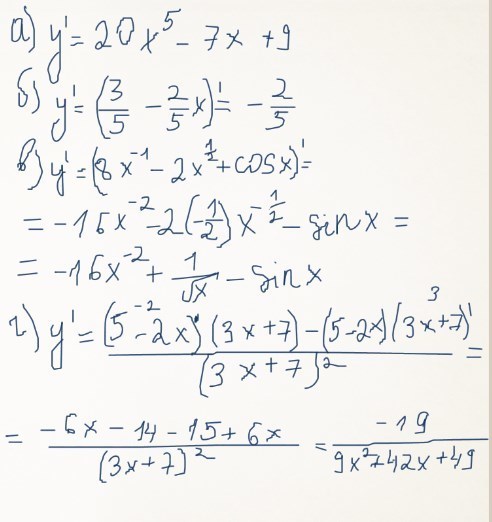 а) y' = 20x⁵ - 7x + 9
б) y' = (3/5 - 2/5 x)' = - 2/5
в) y' = (8x⁻¹ - 2x^(1/2) + cosx)' =
= -16x⁻² - 2(-1/2)x^(-1/2) - sinx =
= -16x⁻² + 1/√x - sinx
г) y' = ((5 - 2x)' (3x+7) - (5-2x)(3x+7)')/(3x+7)² =
-2
3
= (-6x - 14 - 15 + 6x)/(3x+7)² = -19/(9x²+42x+49)